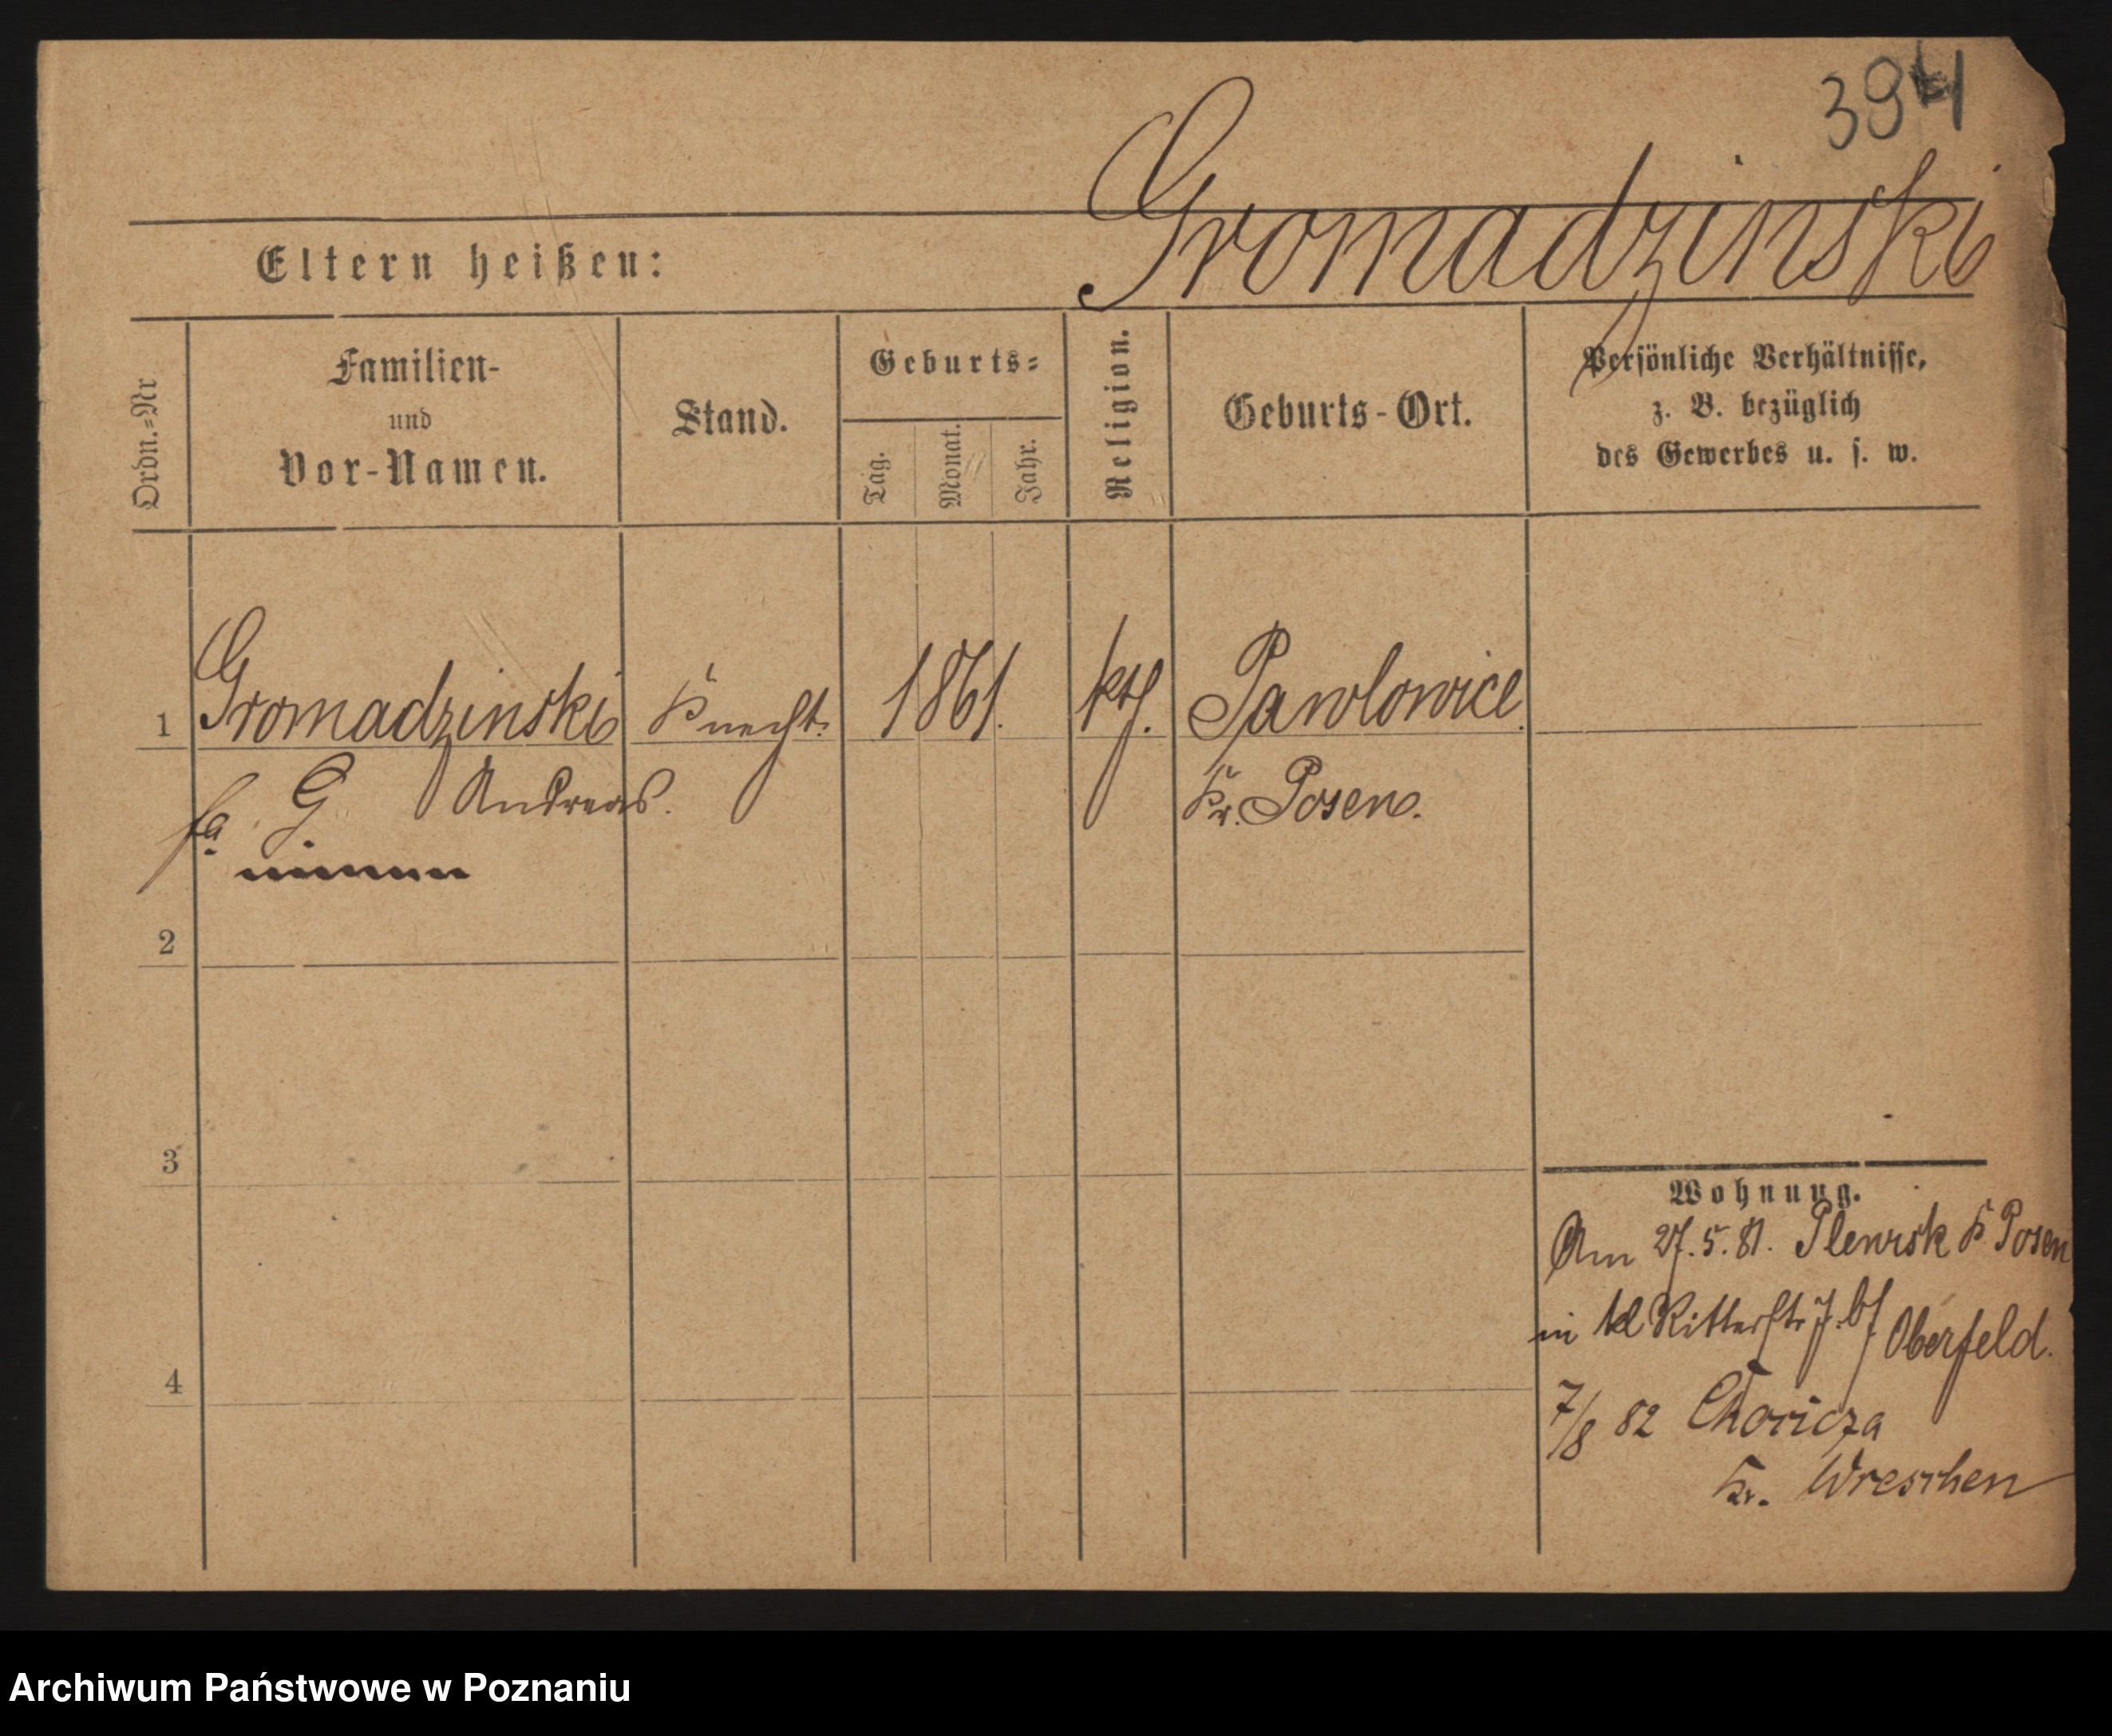 394
Gromadzinski
Eltern heißen:
Ordn.=Nr
Familien-
und
Vor-Namen.
Stand.
Geburts=
Tag.
Monat.
Jahr.
Religion.
Geburts-Ort.
Persönliche Verhältnisse,
z. B. bezüglich
des Gewerbes u. s. w.
1 Gromadzinski Knecht. 1861. kth. Pawlowice.
G Andreas. Kr. Posen.
2
3
4
Wohnung.
Am 27.5.81. Plewisk K Posen
in kl Ritterstr 7. bf Oberfeld.
7/8 82 Choricza
Kr. Wreschen
Archiwum Państwowe w Poznaniu